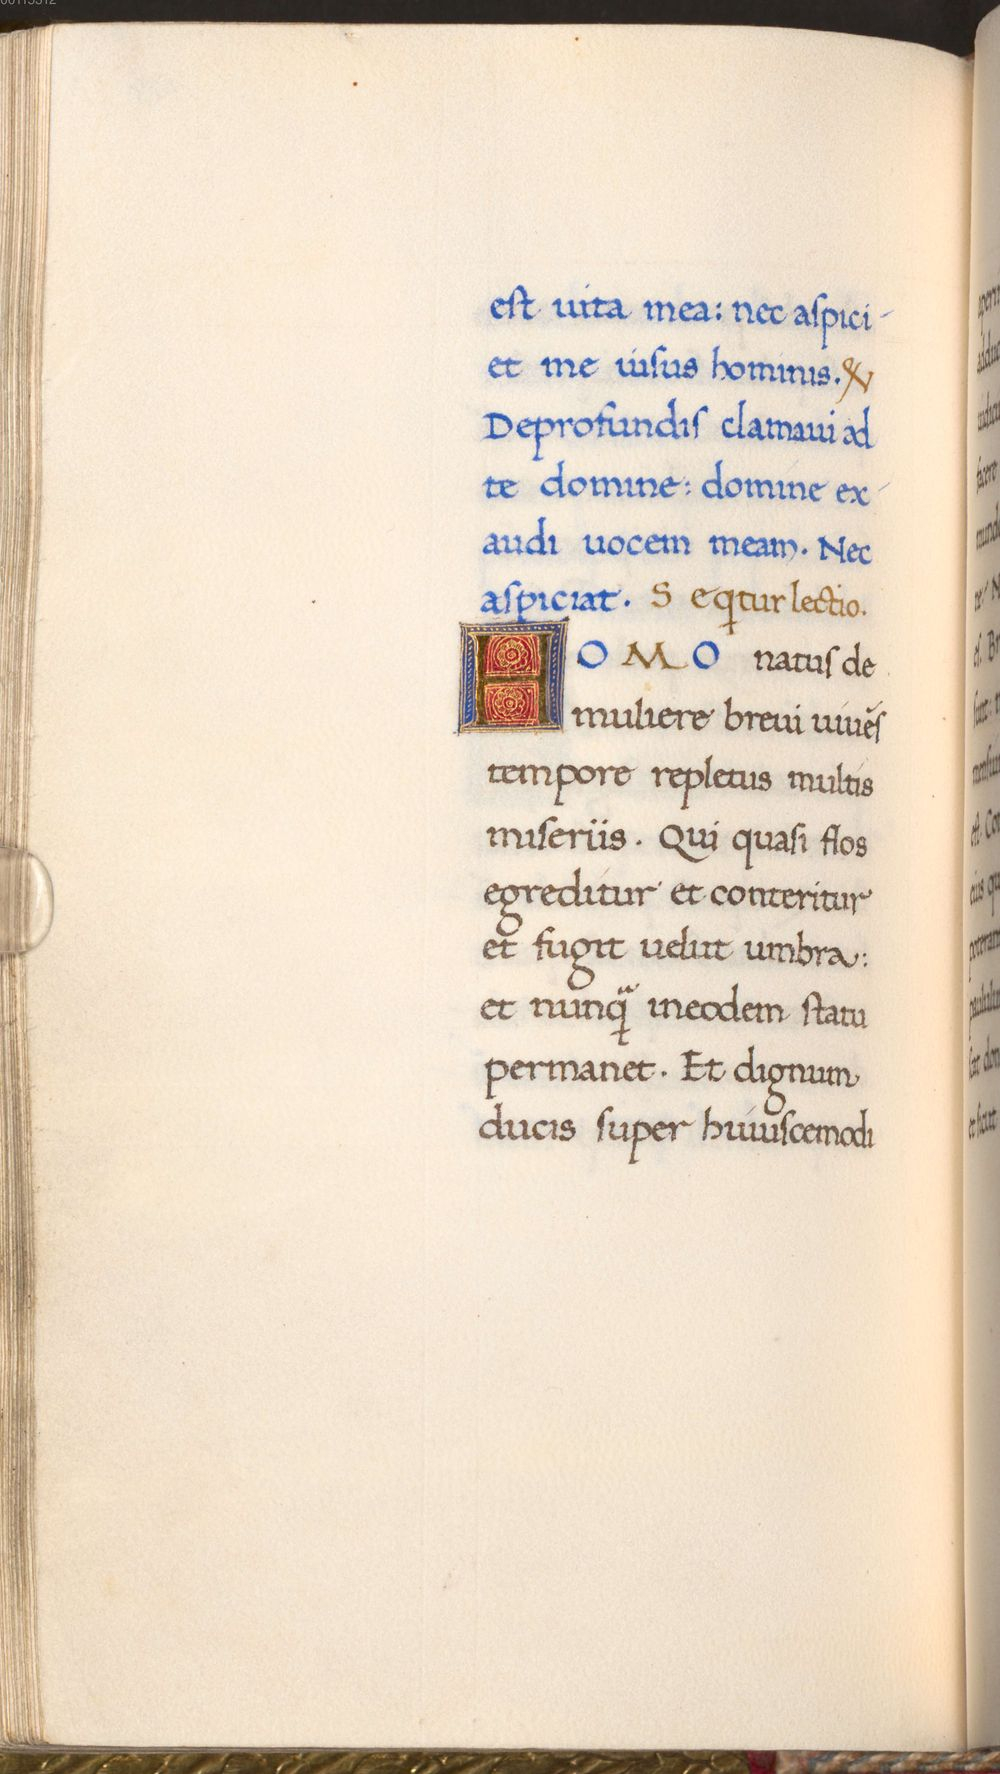 est uita mea: nec aspici-
et me uisus hominis. ℣
Deprofundis clamaui ad
te domine: domine ex-
audi uocem meam. Nec
aspiciat. Seqͥtur lectio.
HOMO natus de
muliere breui uiuẽs
tempore repletus multis
miseriis. Qui quasi flos
egreditur et conteritur
et fugit uelut umbra:
et nunqͣ ineodem statu
permanet. Et dignum
ducis super huiuscemodi